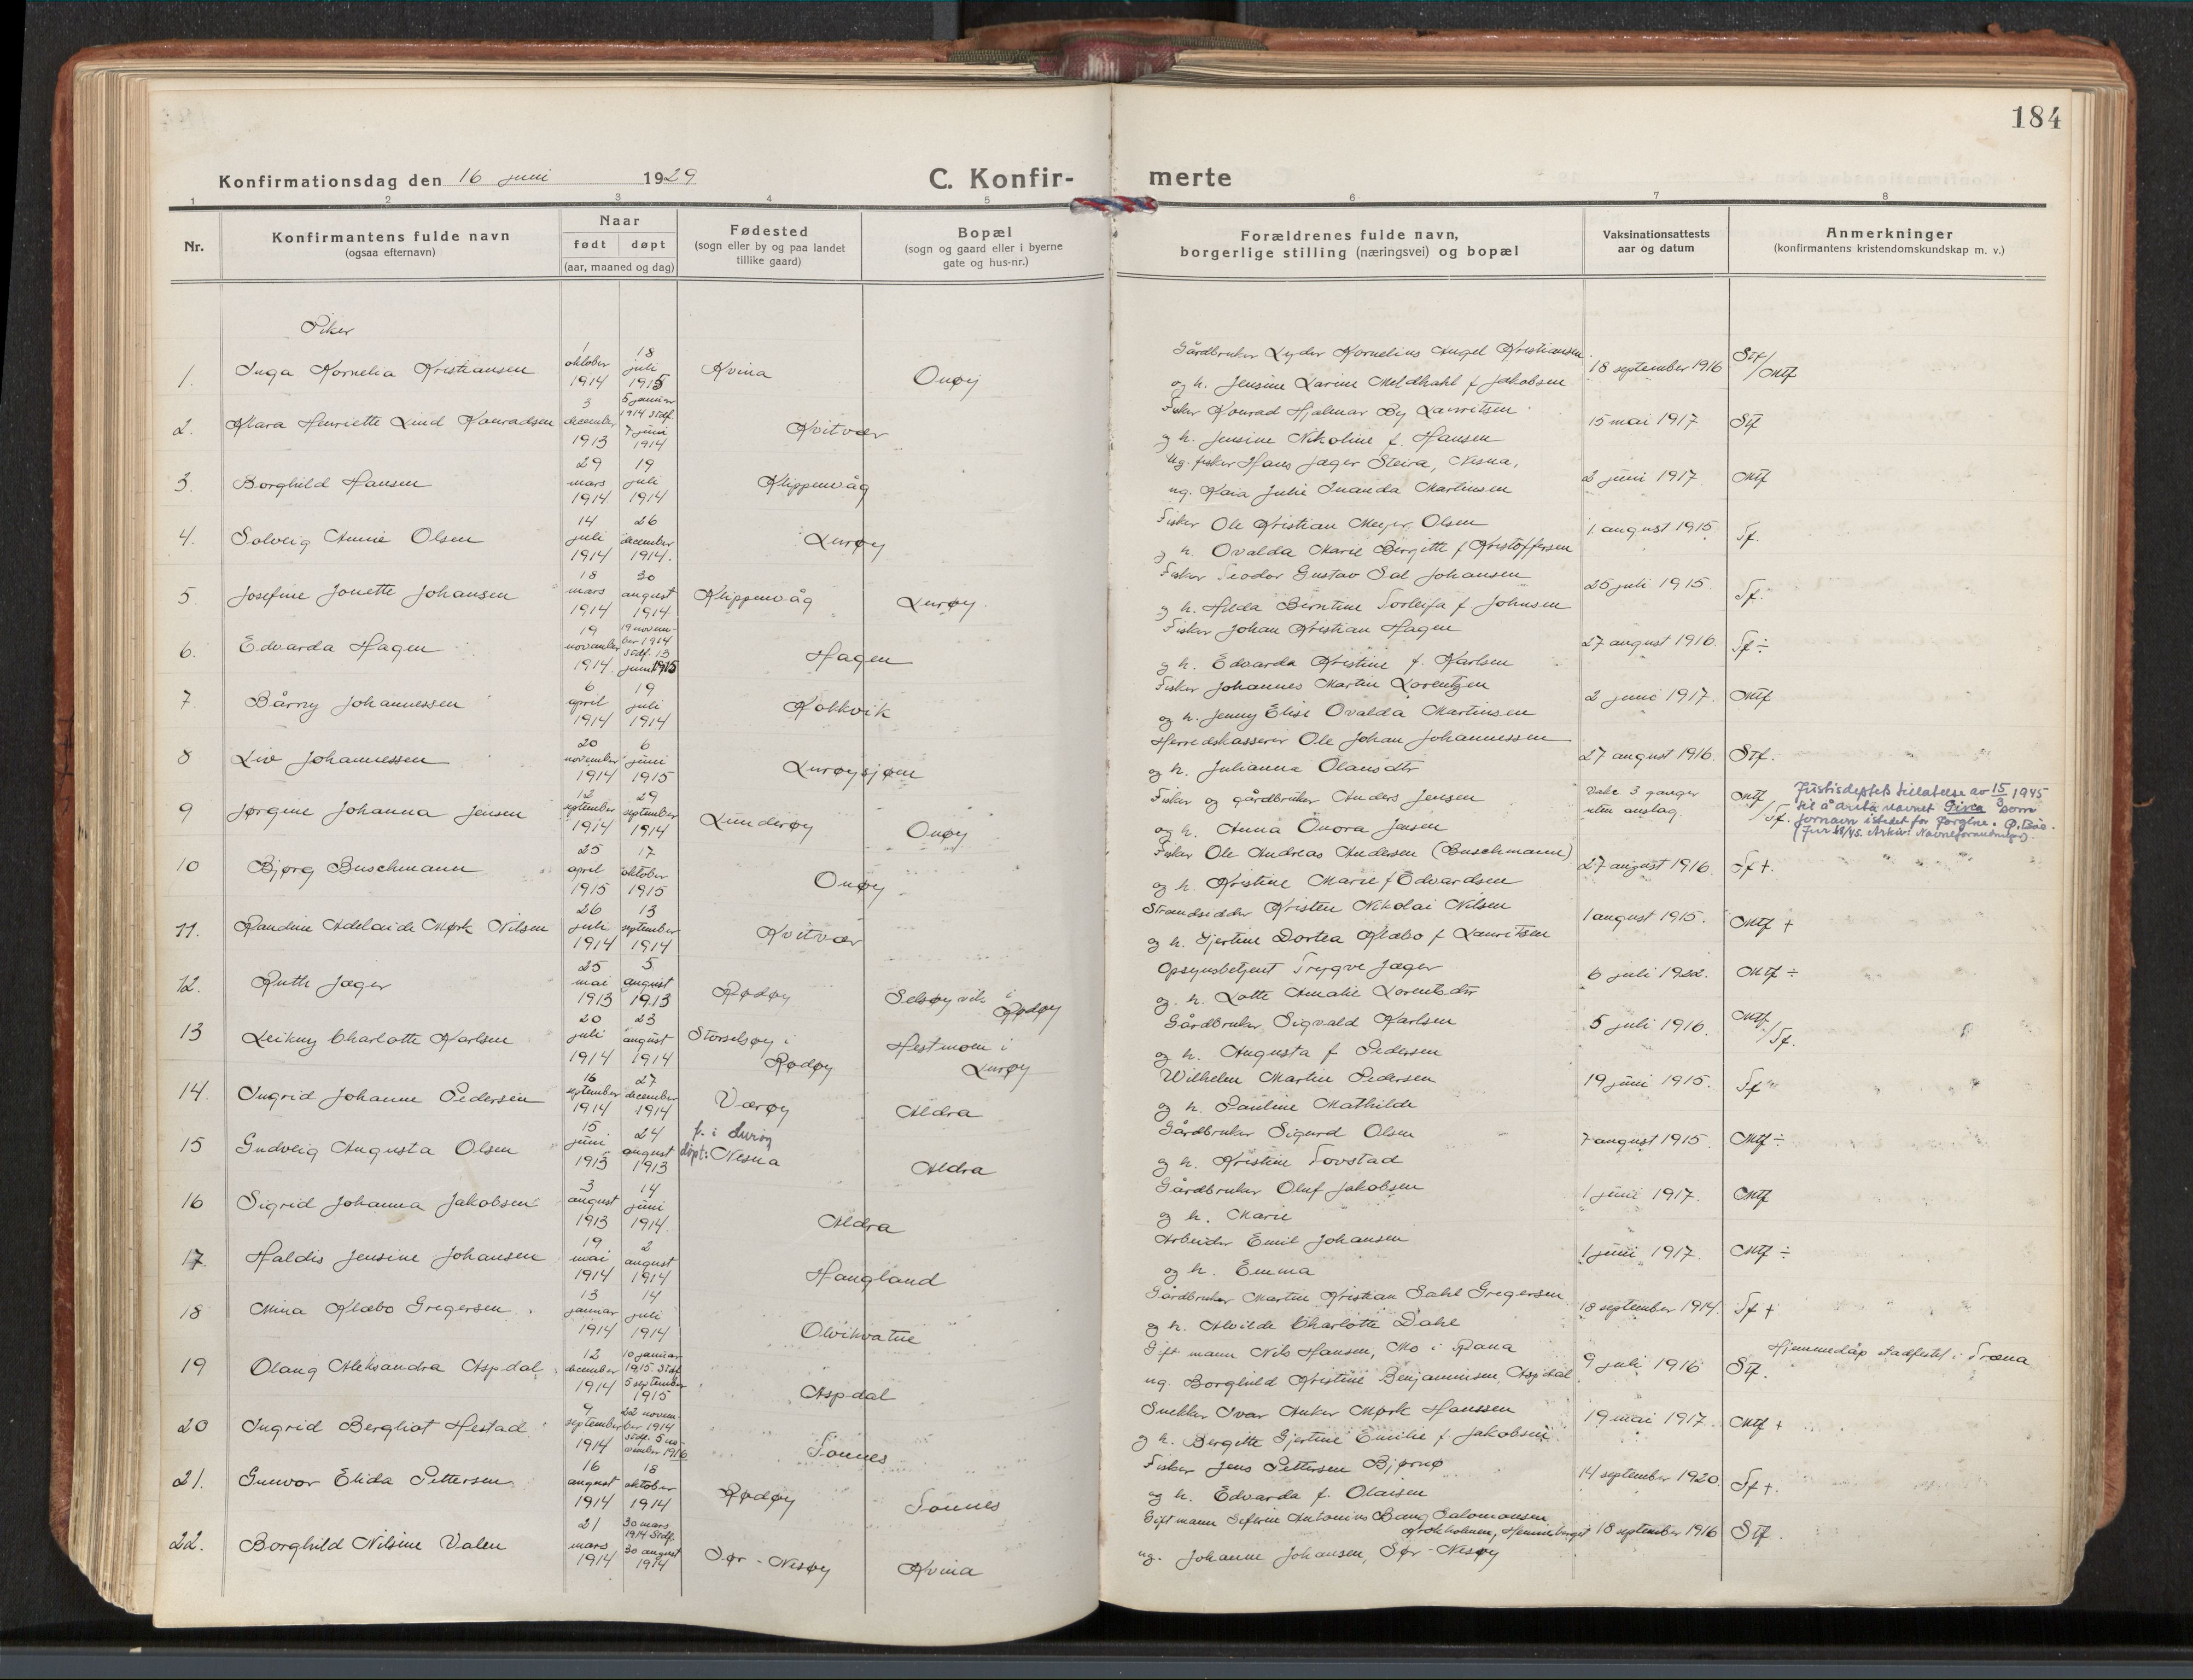 184
Konfirmationsdag den 16 juni 1929
C. Konfir- merte
1 2 3 4 5 6 7 8
Nr.
Konfirmantens fulde navn
(ogsaa efternavn)
Naar
født døpt
(aar, maaned og dag)
Fødested
(sogn eller by og paa landet
tillike gaard)
Bopæl
(sogn og gaard eller i byerne
gate og hus-nr.)
Forældrenes fulde navn,
borgerlige stilling (næringsvei) og bopæl
Vaksinationsattests
aar og datum
Anmerkninger
(konfirmantens kristendomskundskap m. v.)
Piker
1. Inga Kornelia Kristiansen 1 oktober 1914 18 juli 1915 Kvina Onøy
Gårdbruker Lyder Kornelius Angel Kristiansen
og h. Jensine Larine Meldhahl f Jakobsen
18 september 1916 Stf / Mtf
2. Klara Henriette Lind Konradsen 3 december 1913 5 januar 1914 Stdf. 7 juni 1914 Kvitvær
Fisker Konrad Hjalmar By Lauritsen
og h. Jensine Nikoline f. Hansen
15 mai 1917 Stf
3. Borghild Hansen 29 mars 1914 19 juli 1914 Klippenvåg
Ug. fisker Hans Jæger Steira, Nesna,
ug. Kaia Julie Inanda Martinsen
2 juni 1917 Mtf
4. Solveig Annie Olsen 14 juli 1914 26 december 1914. Lurøy
Fisker Ole Kristian Meyer Olsen
og h. Ovalda Marie Bergitte f Kristoffersen
1 august 1915 Tf.
5. Josefine Jonette Johansen 18 mars 1914 30 august 1914. Klippenvåg Lurøy
Fisker Teodor Gustav Sal Johansen
og h. Hilda Berntine Torleifa f. Johnsen
25 juli 1915 Tf.
6. Edvarda Hagen 19 november 1914. 19 november 1914 Stdf. 13 juni 1915 Hagen
Fisker Johan Kristian Hagen
og h. Edvarda Kristine f. Karlsen
27 august 1916. Tf ÷
7. Bårny Johannessen 6 april 1914 19 juli 1914 Kokkvik
Fisker Johannes Martin Lorentzen
og h. Jenny Elise Ovalda Martinsen
2 juni 1917. Mtf
8 Liv Johannessen 20 november 1914 6 juni 1915 Lurøysjøen
Herredskasserer Ole Johan Johannessen
og h. Julianna Olausdtr
27 august 1916. Stf.
9 Jørgine Johanna Jensen 12 september 1914 29 september 1914 Lunderøy Onøy
Fisker og gårdbruker Anders Jensen
og h. Anna Onora Jensen
Vakc 3 ganger
uten anslag.
Mtf / Tf.
Justisdeptets tillatelse av 15/3 1945
til å anta navnet Givea som
fornavn istedet for Jørgine.
10 Bjørg Buschmann 25 april 1915 17 oktober 1915 Onøy
Fisker Ole Andreas Andersen (Buschmann)
og h. Kristine Marie f Edvardsen
27 august 1916. Tf +.
11. Randine Adelaide Mørk Nilsen 26 juli 1914 13 september 1914 Kvitvær
Strandsidder Kristen Nikolai Nilsen
og h. Gjertine Dortea Klæbo f Lauritsen
1 august 1915. Mtf +
12. Ruth Jæger 25 mai 1913 5 august 1913 Rødøy Selsøyvik i Rødøy
Opsynsbetjent Trygve Jæger
og h. Lotte Amalie Lorentsdtr
6 juli 1922. Mtf ÷
13 Leikny Charlotte Karlsen 20 juli 1914 23 august 1914 Storselsøy i Rødøy Hestmoen i Lurøy
Gårdbruker Sigvald Karlsen
og h. Augusta f Pedersen
5 juli 1916. Mtf / Tf.
14. Ingrid Johanne Pedersen 16 september 1914 27 december 1914 Værøy Aldra
Wilhelm Martin Pedersen
og h. Pauline Mathilde
19 juni 1915. Tf
15 Gudveig Augusta Olsen 15 juni 1913 24 august 1913 f. i Lurøy døpt: Nesna Aldra
Gårdbruker Sigurd Olsen
og h. Kristine Tovstad
7 august 1915. Mtf ÷
16 Sigrid Johanna Jakobsen 3 august 1913 14 juni 1914. Aldra
Gårdbruker Oluf Jakobsen
og h. Marie
1 juni 1917. Mtf
17. Haldis Jensine Johansen 19 mai 1914 2 august 1914 Haugland
Arbeider Emil Johansen
og h. Emma
1 juni 1917. Mtf ÷
18 Mina Klæbo Gregersen. 13 januar 1914 14 juli 1914 Olvikvatne
Gårdbruker Martin Kristian Dahl Gregersen
og h. Alvilde Charlotte Dahl
18 september 1914. Tf +
19 Olaug Aleksandra Aspdal 12 december 1914 10 januar 1915 Stdf. 5 september 1915 Aspdal
Gift mann Nils Hansen, Mo i Rana
ug. Borghild Kristine Benjaminsen, Aspdal
9 juli 1916 Stf. Hjemmedåp stadfestet i Træna
20 Ingrid Bergliot Hestad 9 september 1914 22 november 1914 Stdf. 5 november 1916 Tonnes
Snekker Ivar Anker Mørk Hanssen
og h. Bergitte Gjertine Emilie f. Jakobsen
19 mai 1917. Mtf +
21. Gunvor Elida Pettersen 16 august 1914 18 oktober 1914 Rødøy Tonnes
Fisker Jens Pettersen Bjørnø
og h. Edvarda f. Olaisen
14 september 1920. Tf +.
22. Borghild Nilsine Valen 21 mars 1914 30 mars 1914 Stdf. 30 august 1914 Sør-Nesøy Kvina
Gift mann Seferin Antonius Bang Salomonsen,
Hemnesberget
ug. Johanne Johansen, Sør-Nesøy
18 september 1916 Stf.